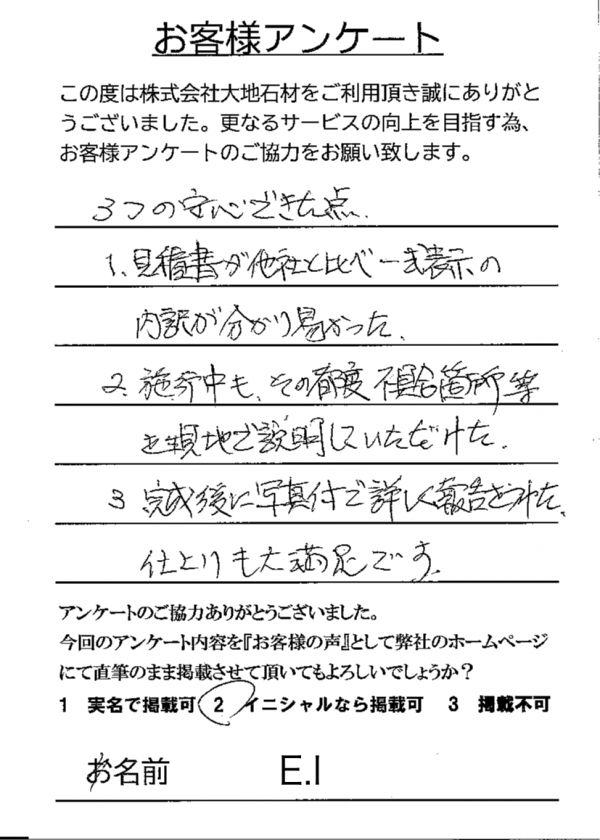 お客様アンケート
この度は株式会社大地石材をご利用頂き誠にありがと
うございました。更なるサービスの向上を目指す為、
お客様アンケートのご協力をお願い致します。
3つの安心できた点.
1、見積書が他社と比べ一式表示の
内訳が分かり易かった、
2、施行中も、その都度 不具合箇所等
を現地で説明していただけた。
3 完成後に写真付で詳しく報告をうけた、
仕上りも大満足です。
アンケートのご協力ありがとうございました。
今回のアンケート内容を『お客様の声』として弊社のホームページ
にて直筆のまま掲載させて頂いてもよろしいでしょうか？
1 実名で掲載可 2 イニシャルなら掲載可 3 掲載不可
お名前 E.I